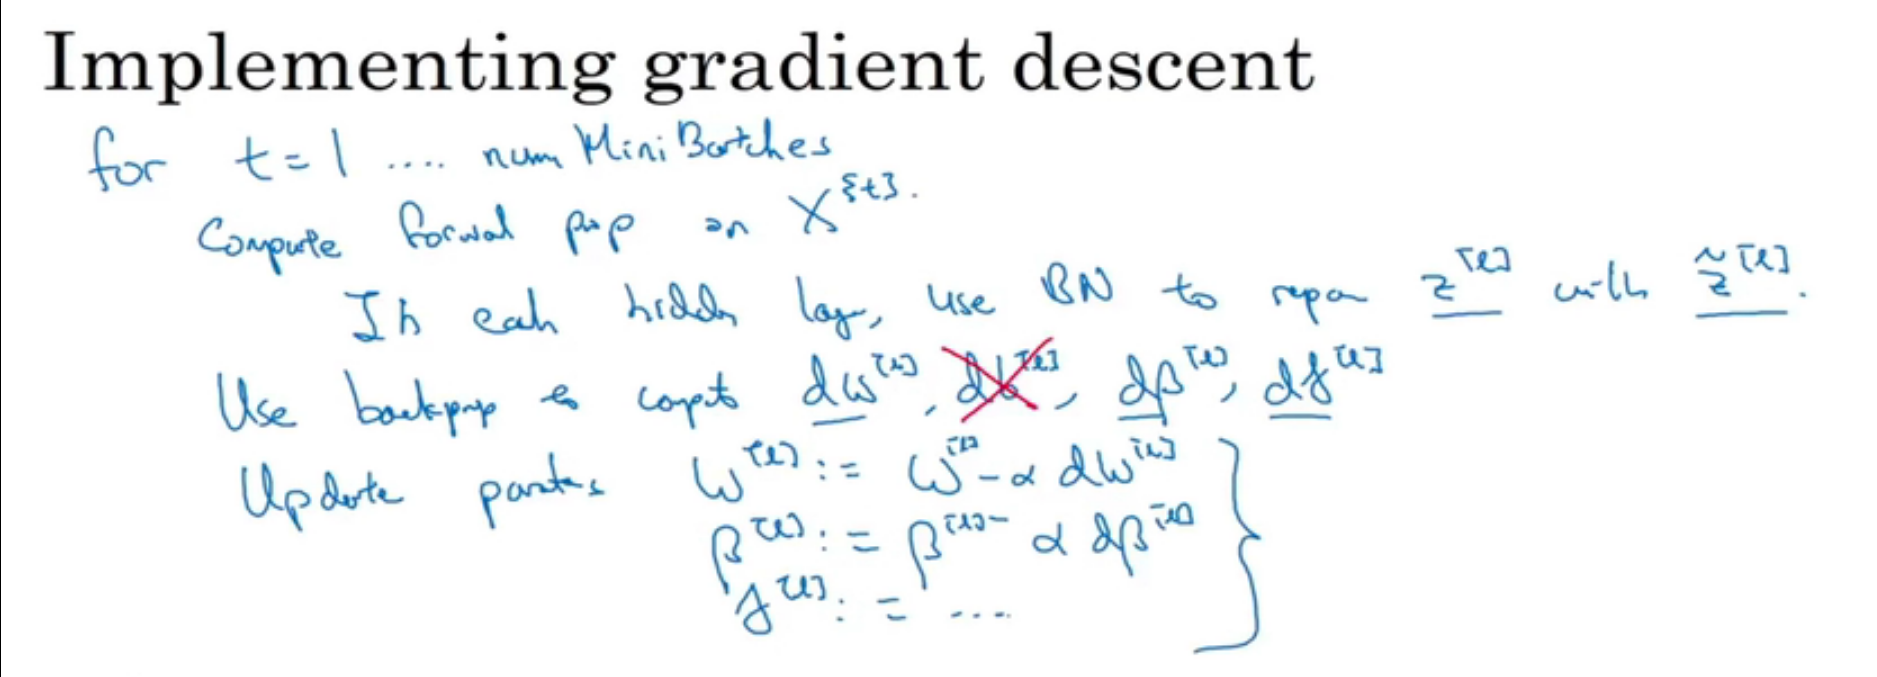 Implementing gradient descent
for t = 1 .... num Mini Batches
Compute forwal prop on X^{t}.
In eah hidden lay, use BN to repa z^[l] with z̃^[l].
Use backprop to compt dw^[l], db^[l], dβ^[l], dγ^[l]
Update partes w^[l] := w^[l] - α dw^[l]
β^[l] := β^[l] - α dβ^[l]
γ^[l] := ....